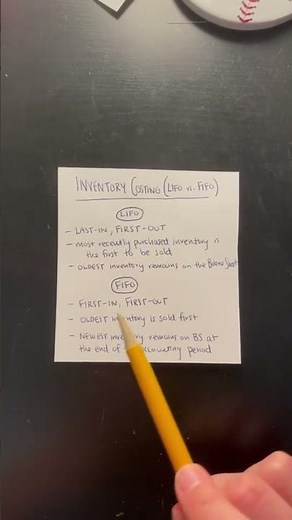 INVENTORY COSTING (LIFO vs. FIFO)
LIFO
- LAST-IN, FIRST-OUT
- most recently purchased inventory is
the first to be sold
- OLDEST inventory remains on the Balance Sheet
FIFO
- FIRST-IN, FIRST-OUT
- OLDEST inventory is sold first
- NEWEST inventory remains on BS at
the end of accounting period